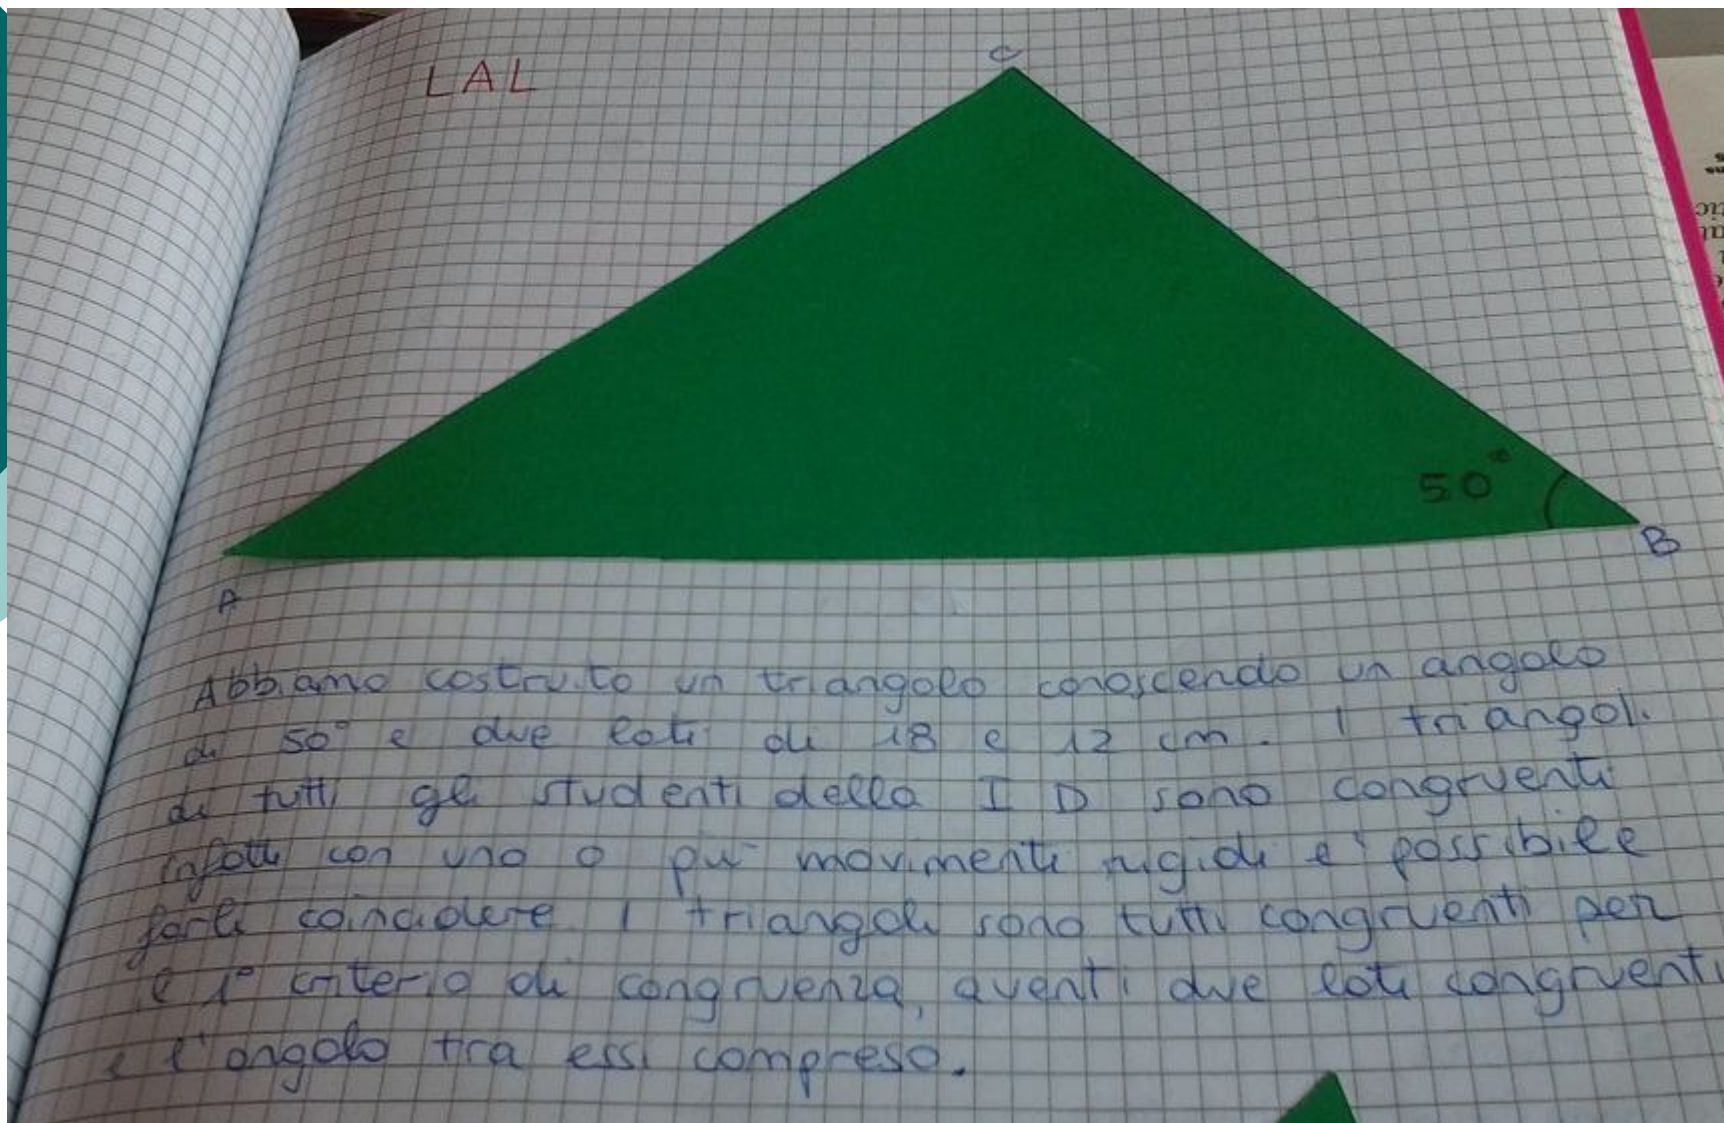 LAL
C
50°
B
A
Abbiamo costruito un triangolo conoscendo un angolo
di 50° e due lati di 18 e 12 cm. I triangoli
di tutti gli studenti della I D sono congruenti
infatti con uno o più movimenti rigidi e' possibile
farli coincidere. I triangoli sono tutti congruenti per
il 1° criterio di congruenza, aventi due lati congruenti
e l'angolo tra essi compreso.